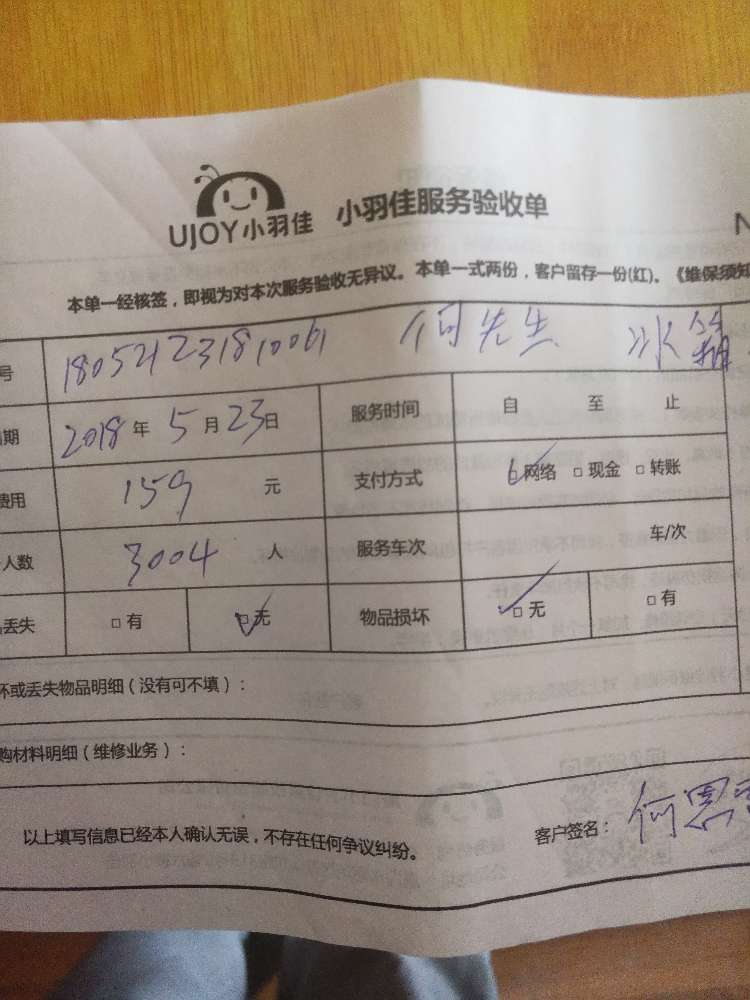 UJOY小羽佳 小羽佳服务验收单 N
本单一经核签，即视为对本次服务验收无异议。本单一式两份，客户留存一份(红)。《维保须知
号 180521231810061 何先生 冰箱
期 2018年5月23日 服务时间 自 至 止
费用 159 元 支付方式 □网络 □现金 □转账
人数 3004 人 服务车次 车/次
丢失 □有 □无 物品损坏 □无 □有
坏或丢失物品明细（没有可不填）：
购材料明细（维修业务）：
以上填写信息已经本人确认无误，不存在任何争议纠纷。 客户签名：何恩